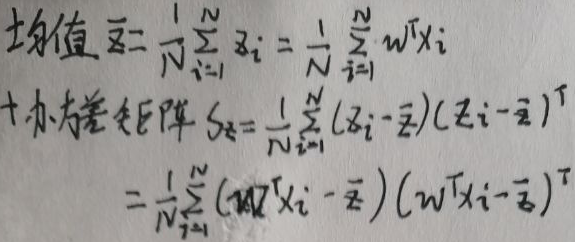 均值 z̄ = 1/N ∑_{i=1}^{N} z_i = 1/N ∑_{i=1}^{N} w^T x_i
协方差矩阵 S_z = 1/N ∑_{i=1}^{N} (z_i - z̄)(z_i - z̄)^T
= 1/N ∑_{i=1}^{N} (w^T x_i - z̄)(w^T x_i - z̄)^T